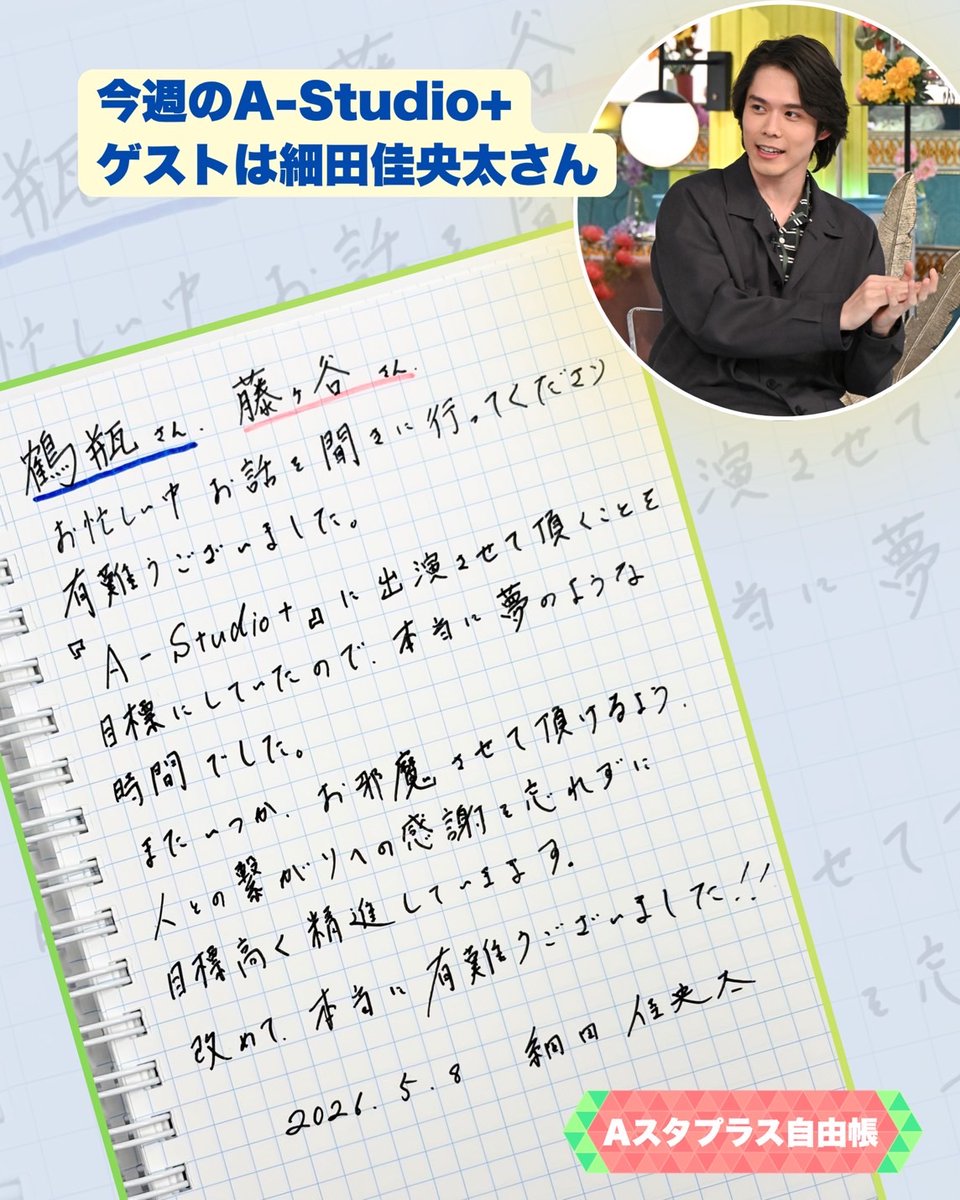 今週のA-Studio+
ゲストは細田佳央太さん
鶴瓶さん. 藤ヶ谷さん.
お忙しい中 お話を聞きに行ってくださり
有難うございました。
『A-Studio+』に出演させて頂くことを
目標にしていたので、本当に夢のような
時間でした。
またいつか、お邪魔させて頂けるよう、
人との繋がりへの感謝を忘れずに
目標高く精進していきます。
改めて、本当に有難うございました!!
2026.5.8 細田 佳央太
Aスタプラス自由帳